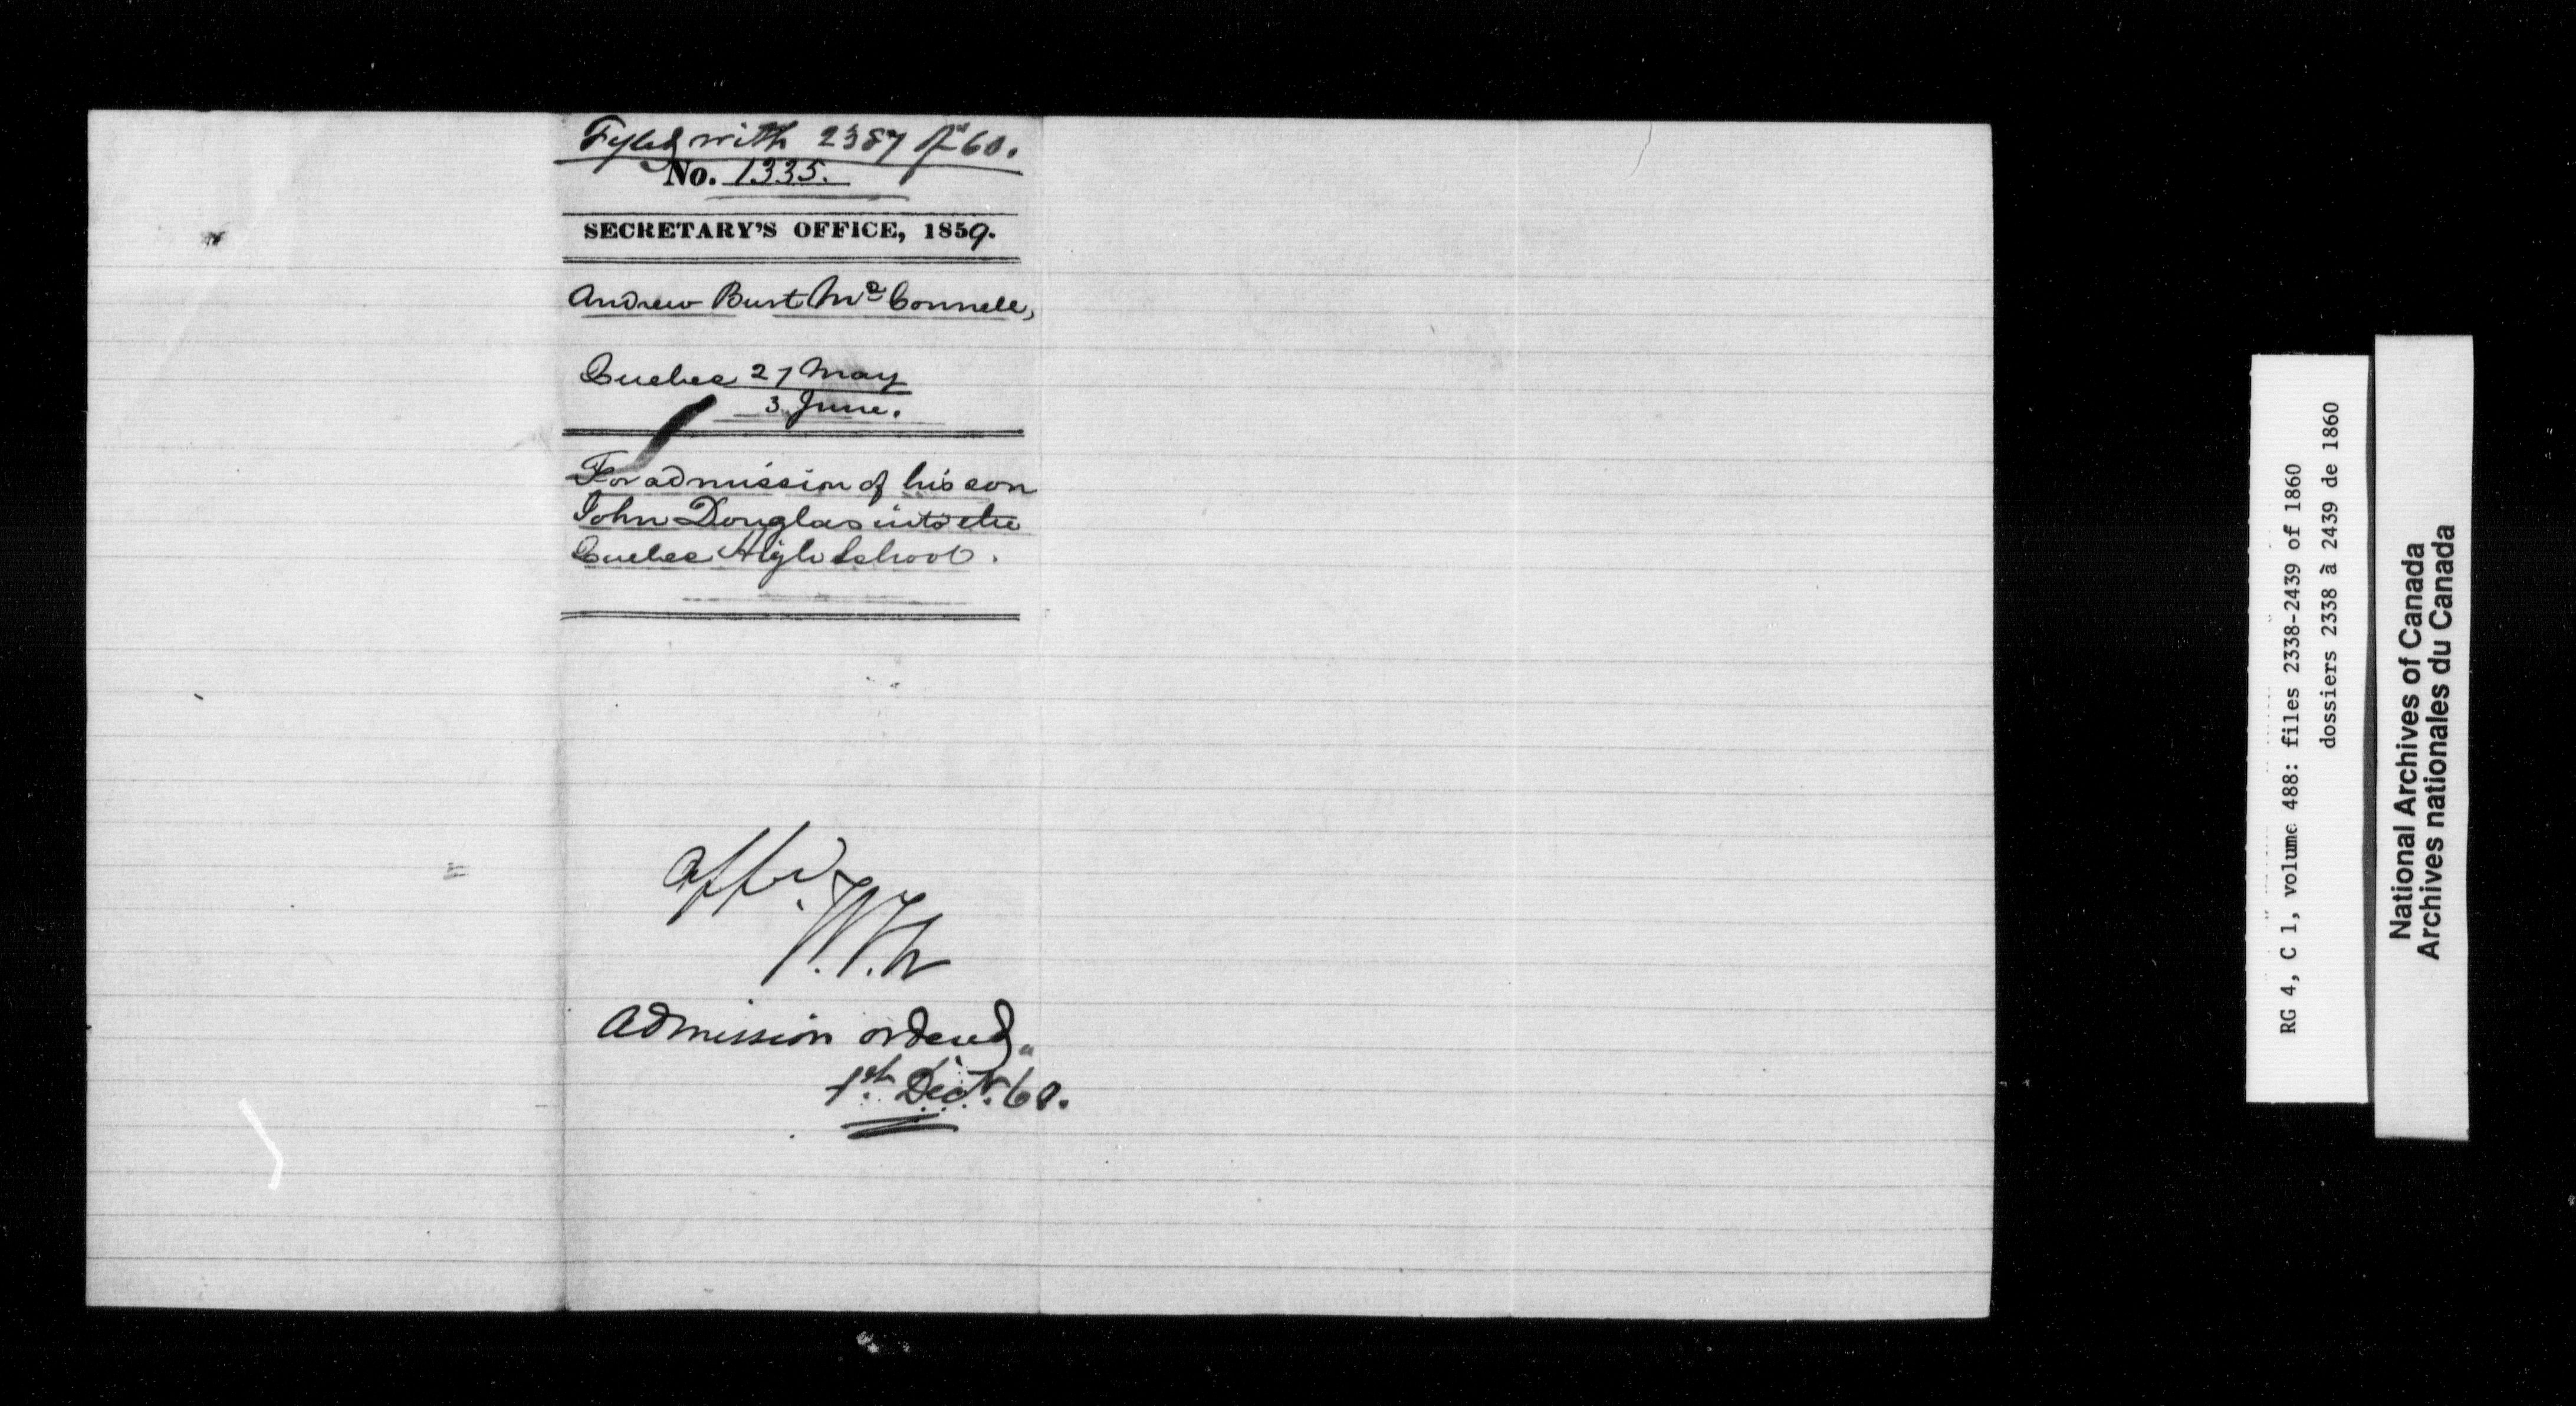 Fyled with 2387 of "60.
No. 1335.
SECRETARY'S OFFICE, 1859.
Andrew Burt McConnell,
Quebec 27 May
3 June.
For admission of his son
John Douglas into the
Quebec High School.
Admission ordered
1st Decr. 60.
RG 4, C 1, volume 488: files 2338-2439 of 1860
dossiers 2338 à 2439 de 1860
National Archives of Canada
Archives nationales du Canada